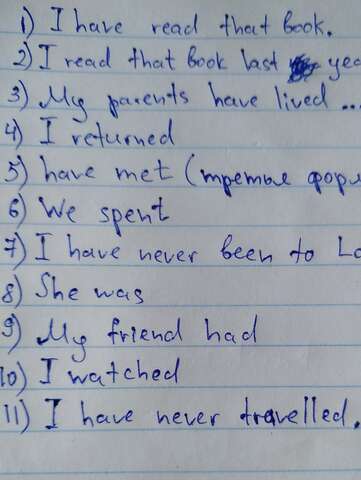 1) I have read that book.
2) I read that book last
3) My parents have lived ...
4) I returned
5) have met (третья
6) We spent
7) I have never been to
8) She was
9) My friend had
10) I watched
11) I have never travelled.